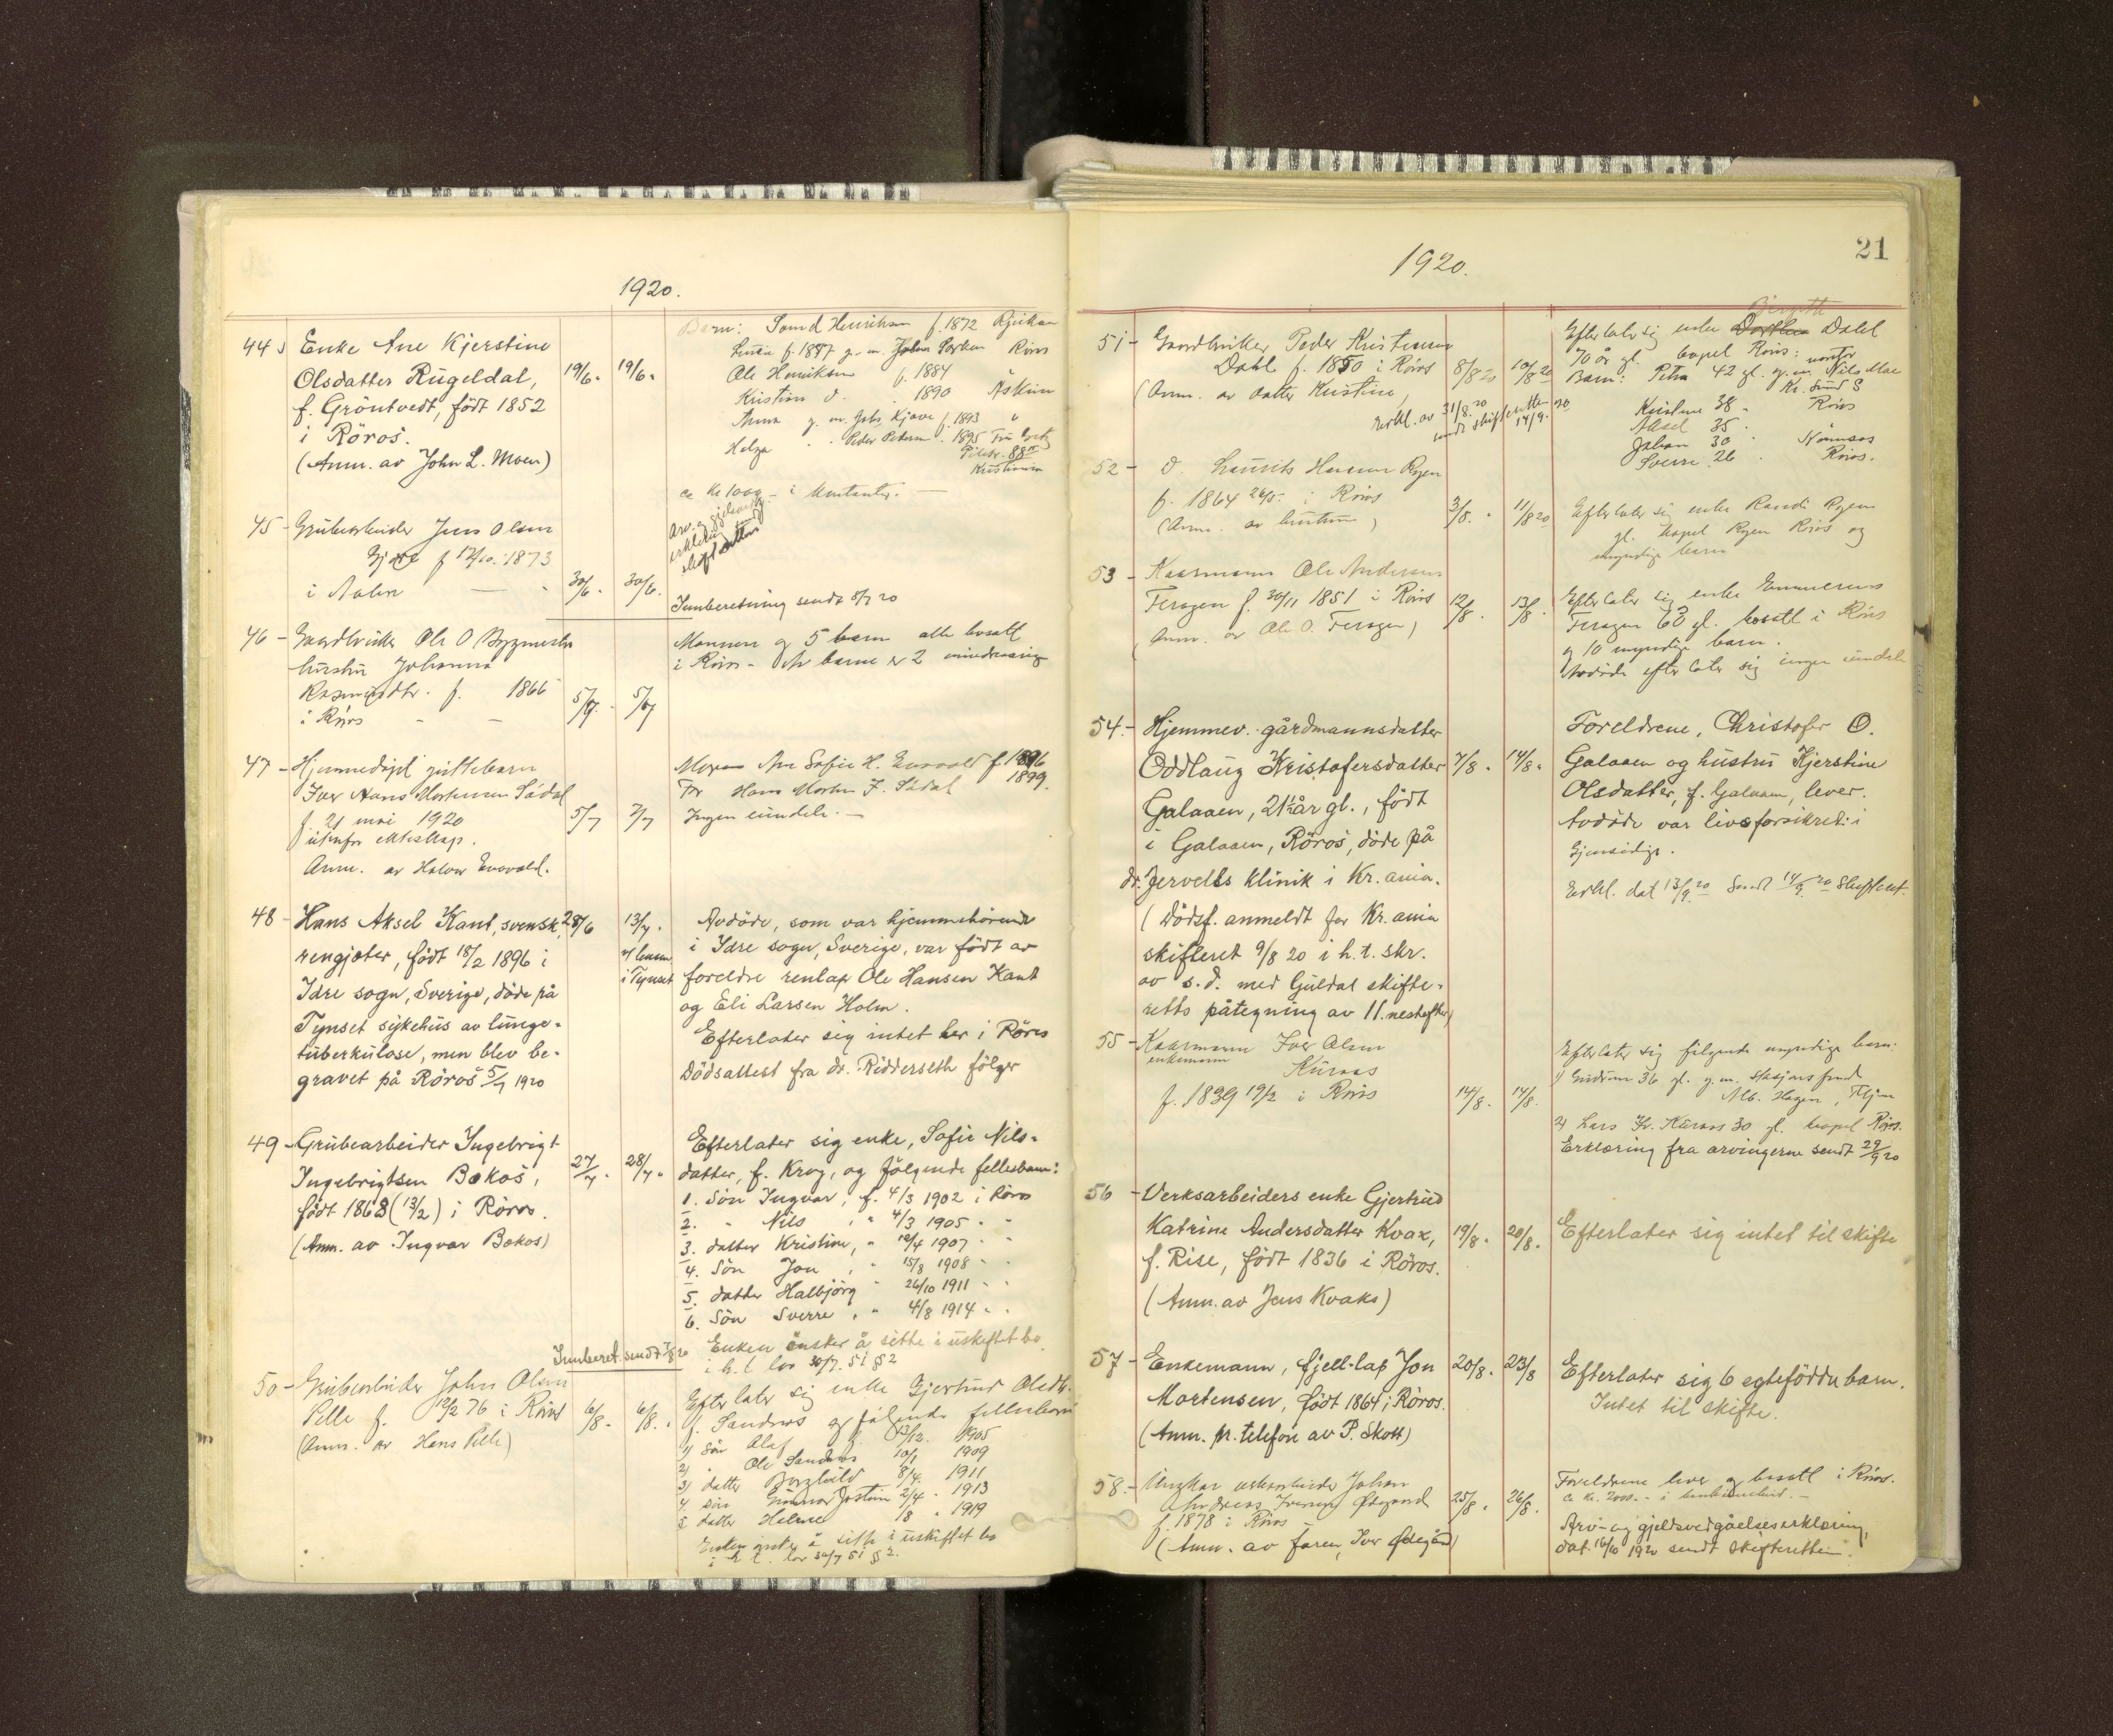 1920.
44 Enke Ane Kjerstine
Olsdatter Rugeldal,
f. Gröntvedt, født 1852
i Röros.
(Anm. av John L. Moen)
19/6. 19/6.
Barn: f. 1872 Rjukan
Röros
Ole Henriksen f. 1884
Kristian d. 1890 Askim
Anna g. m. f. 1893 "
Helga " " Peder Pedersen . 1895
Kristiania
ca Kr 1000 - i kontanter. -
Arv. og
erklæring sendt
skifteretten
45 - Grubearbeider Jens Olsen
f 12/10. 1873
i Aalen - -
30/6. 30/6.
Innberetning sendt 5/7 20
46 - Gaardbruker Ole O Bygmester
hustru Johanna
f. 1866
i Röros - -
5/7. 5/7
Mannen og 5 barn alle bosatt
i Röros - Av barna er 2 mindreaarig
47 - Hjemmedøpt guttebarn
Iver Hans Mortensen Sådal
f. 21 mai 1920
utenfor ekteskap.
Anm. av Halvor Envold.
5/7 7/7
Moren Ane Sofie H. f. 1896
Far Hans Morten J. Sådal 1899.
Ingen eiendele. -
48 - Hans Aksel Kant, svensk
rengjæter, født 18/2 1896 i
Idre sogn, Sverige, døde på
Tynset sykehus av lunge-
tuberkulose, men blev be-
gravet på Röros 5/7 1920
28/6 13/7.
i Tynset
Avdöde, som var hjemmehörende
i Idre sogn, Sverige, var födt av
foreldre renlap Ole Hansen Kant
og Eli Larsen Holm.
Efterlater sig intet her i Röros
Dödsattest fra dr. Ridderseth fölger
49 - Grubearbeider Ingebrigt
Ingebrigtsen Bokos,
födt 1868 (13/2) i Röros.
(Anm. av Ingvar Bokos)
27/7. 28/7.
Efterlater sig enke, Sofie Nils-
datter, f. Krog, og fölgende fellesbarn:
1. Sön Ingvar, f. 4/3 1902 i Röros
2. " Nils , " 4/3 1905 " "
3. datter Kristine, " 12/4 1907 " "
4. Sön Jon , " 15/8 1908 " "
5. datter Halbjörg " 26/10 1911 " "
6. Sön Sverre , " 4/8 1914 " "
Enken önsker å sitte i uskiftet bo
i h. t. lov 30/7. 51 § 2
Innberet. sendt 20
50 - Grubearbeider John Olsen
Pelle f. 12/2 76 i Röros
(Anm. av Hans Pelle)
6/8. 6/8.
Efterlater sig enke Gjertrud Olsdtr.
f. Sandnes og fölgende fellesbarn
1) Sön Olaf f. 13/12. 1905
2) " Ole Sandnes 10/1 1909
3) datter Borghild 8/4. 1911
4. sön Gunnar Jostein 2/4 - 1913
5 datter Helene 18 " 1919
Enken önsker å sitte i uskiftet bo
i h. t. lov 30/7 51 § 2.
21
1920.
51 - Gaardbruker Peder Kristensen
Dahl f. 1850 i Röros
(Anm. av datter Kristine,
8/8 20 10/8 20
Erkl. av 31/8. 20
sendt skifteretten 14/9. 20
Efterlater sig enke Bergitte Dahl
70 år gl. bopel Röros:
Barn: Petra 42 gl. g. m. Nils Moe
Kr. sund S
Kristine 38 " Röros
Aksel 35 "
Johan 30 " Namsos
Sverre 26 . Röros.
52 - d. Laurits Hansen Ryen
f. 1864 26/5. i Röros
(Anm. av hustruen)
3/8. " 11/8 20
Efterlater sig enke Randi Ryen
gl. bopel Ryen Röros og
umyndige barn
53 - Kaarmann Ole Andersen
Feragen f. 30/11 1851 i Röros
(Anm. av Ole O. Feragen)
12/8. 13/8.
Efterlater sig enke
Feragen 63 gl. bosatt i Röros
og 10 myndige barn.
Avdöde efterlater sig ingen eiendele
54. - Hjemmev. gårdmannsdatter
Oddlaug Kristofersdatter
Galaaen, 21½ år gl., födt
i Galaaen, Röros, döde på
dr. Jervells klinik i Kr.ania.
(Dödsf. anmeldt for Kr.ania
skifteret 9/8 20 i h. t. skr.
av s.d. med Guldal skifte-
retts påtegning av 11. nesthefter)
7/8. 14/8.
Foreldrene, Christofer O.
Galaaen og hustru Kjerstine
Olsdatter, f. Galaaen, lever.
Avdöde var livsforsikret i
Gjensidige.
Erkl. dat 13/9. 20 Sendt 14/9 20 Skifteret.
55 - Kaarmann Iver Olsen
enkemann Kuraas
f. 1839 19/2 i Röros
14/8. 14/8.
Efterlater sig fölgende myndige barn:
1) Gudrun 36 gl. g. m.
Alb. Hagen,
2) Lars Kuraas 30 gl. bopel Röros.
Erklæring fra arvingerne sendt 29/9 20
56 - Verksarbeiders enke Gjertrud
Katrine Andersdatter Kvax,
f. Rise, födt 1836 i Röros.
(Anm. av Jens Kvaks)
19/8. 20/8.
Efterlater sig intet til skifte
57 - Enkemann, fjell-lap Jon
Mortensen, födt 1864 i Röros.
(Anm. pr. telefon av P. Skott)
20/8. 23/8
Efterlater sig 6 egtefödde barn.
Intet til skifte.
58. - Ungkar Johan
Andreas Iversen Ødegaard
f. 1878 i Röros -
(Anm. av faren, Iver Ødegård)
25/8. 26/8.
Foreldrene lever og bosatt i Röros.
ca kr. 2000.- i bankinnskud. -
Arv- og gjeldsvedgåelseserklæring,
dat. 16/10 1920 sendt skifteretten.